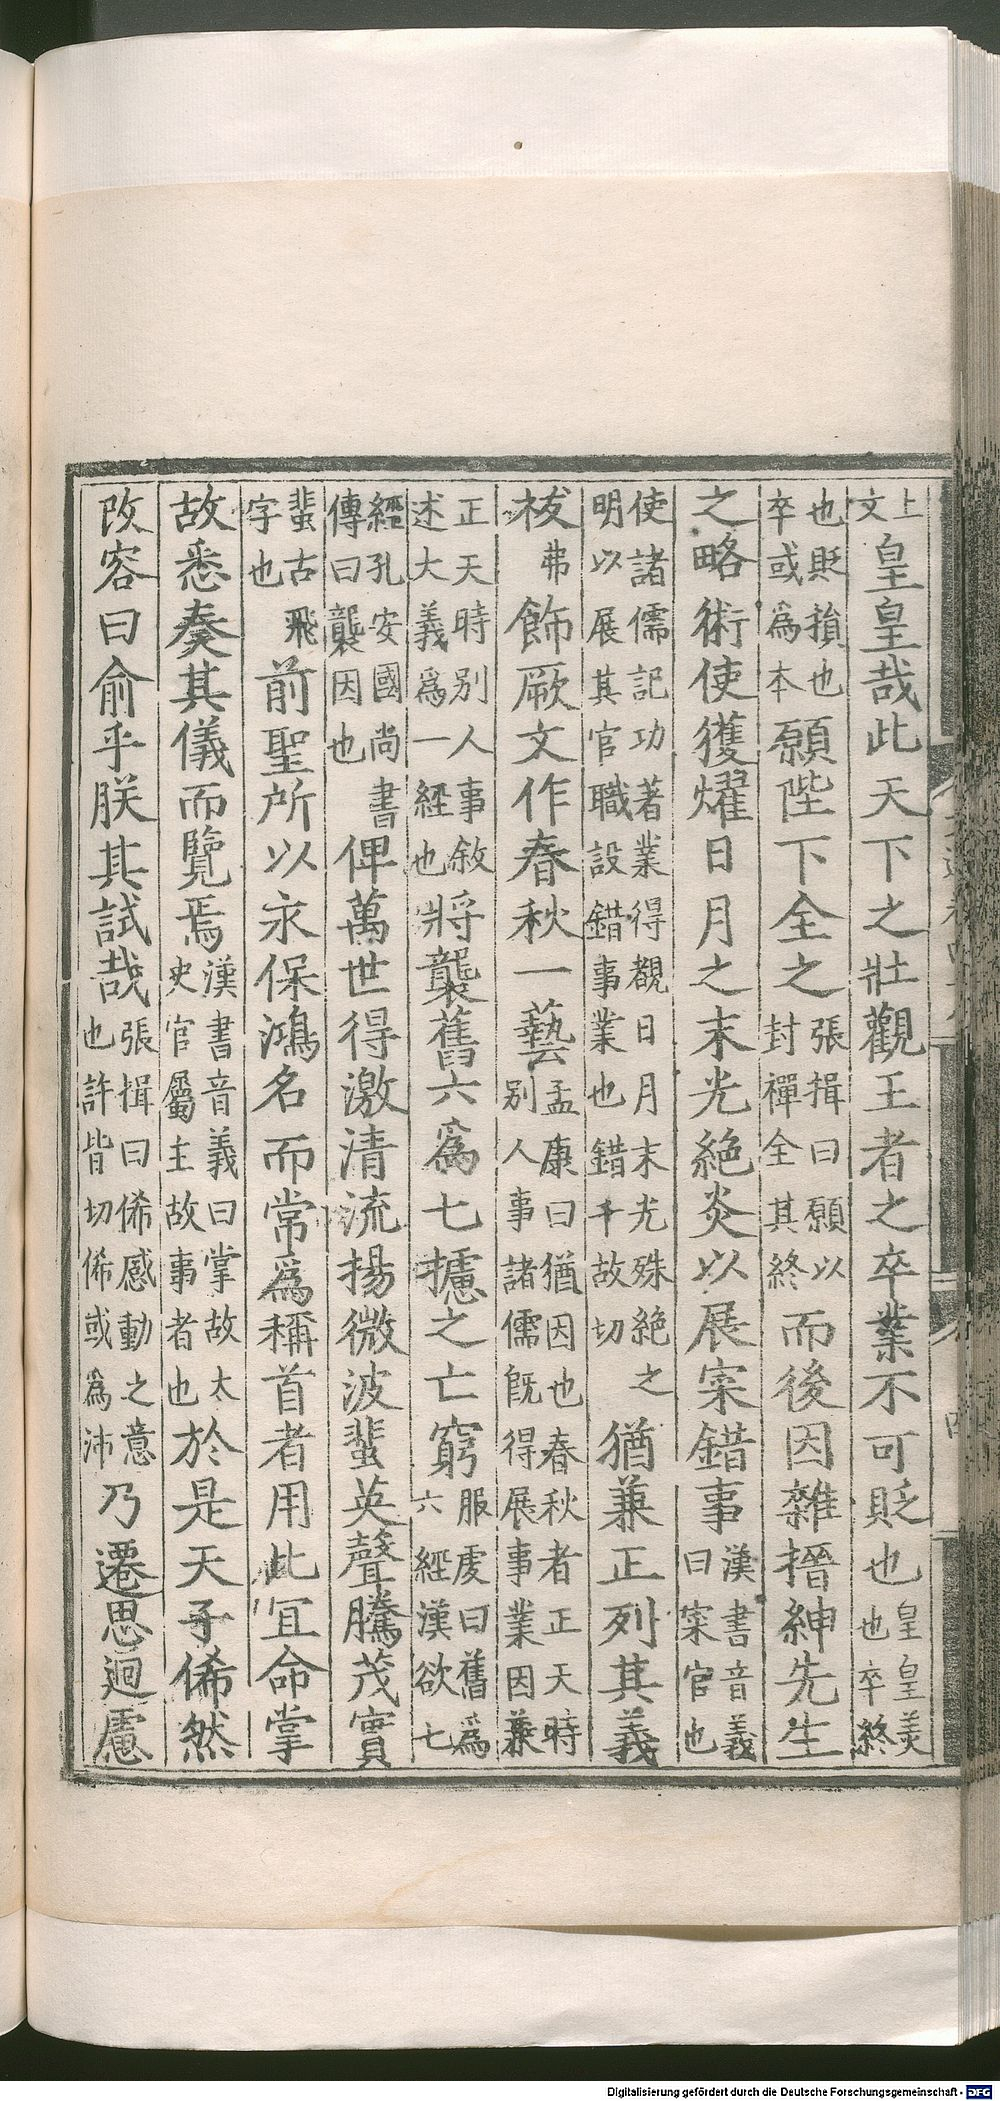 上文皇皇哉此天下之壯觀王者之卒業不可貶也皇皇美也卒終
也貶損也卒或爲本願陛下全之張揖曰願以封禪全其終而後因雜搢紳先生
之略術使獲燿日月之末光絶炎以展寀錯事漢書音義曰寀官也
使諸儒記功著業得覩日月末光殊絶之明以展其官職設錯事業也錯千故切猶兼正列其義
祓弗飾厥文作春秋一藝孟康曰猶因也春秋者正天時別人事諸儒旣得展事業因兼
正天時別人事敘述大義爲一經也將襲舊六爲七攄之亡窮服虔曰舊爲六經漢欲七
經孔安國尚書傳曰襲因也俾萬世得激清流揚微波蜚英聲騰茂實
蜚古飛字也前聖所以永保鴻名而常爲稱首者用此宜命掌
故悉奏其儀而覽焉漢書音義曰掌故太史官屬主故事者也於是天子俙然
改容曰俞乎朕其試哉張揖曰俙感動之意也許皆切俙或爲沛乃遷思迴慮
Digitalisierung gefördert durch die Deutsche Forschungsgemeinschaft - DFG